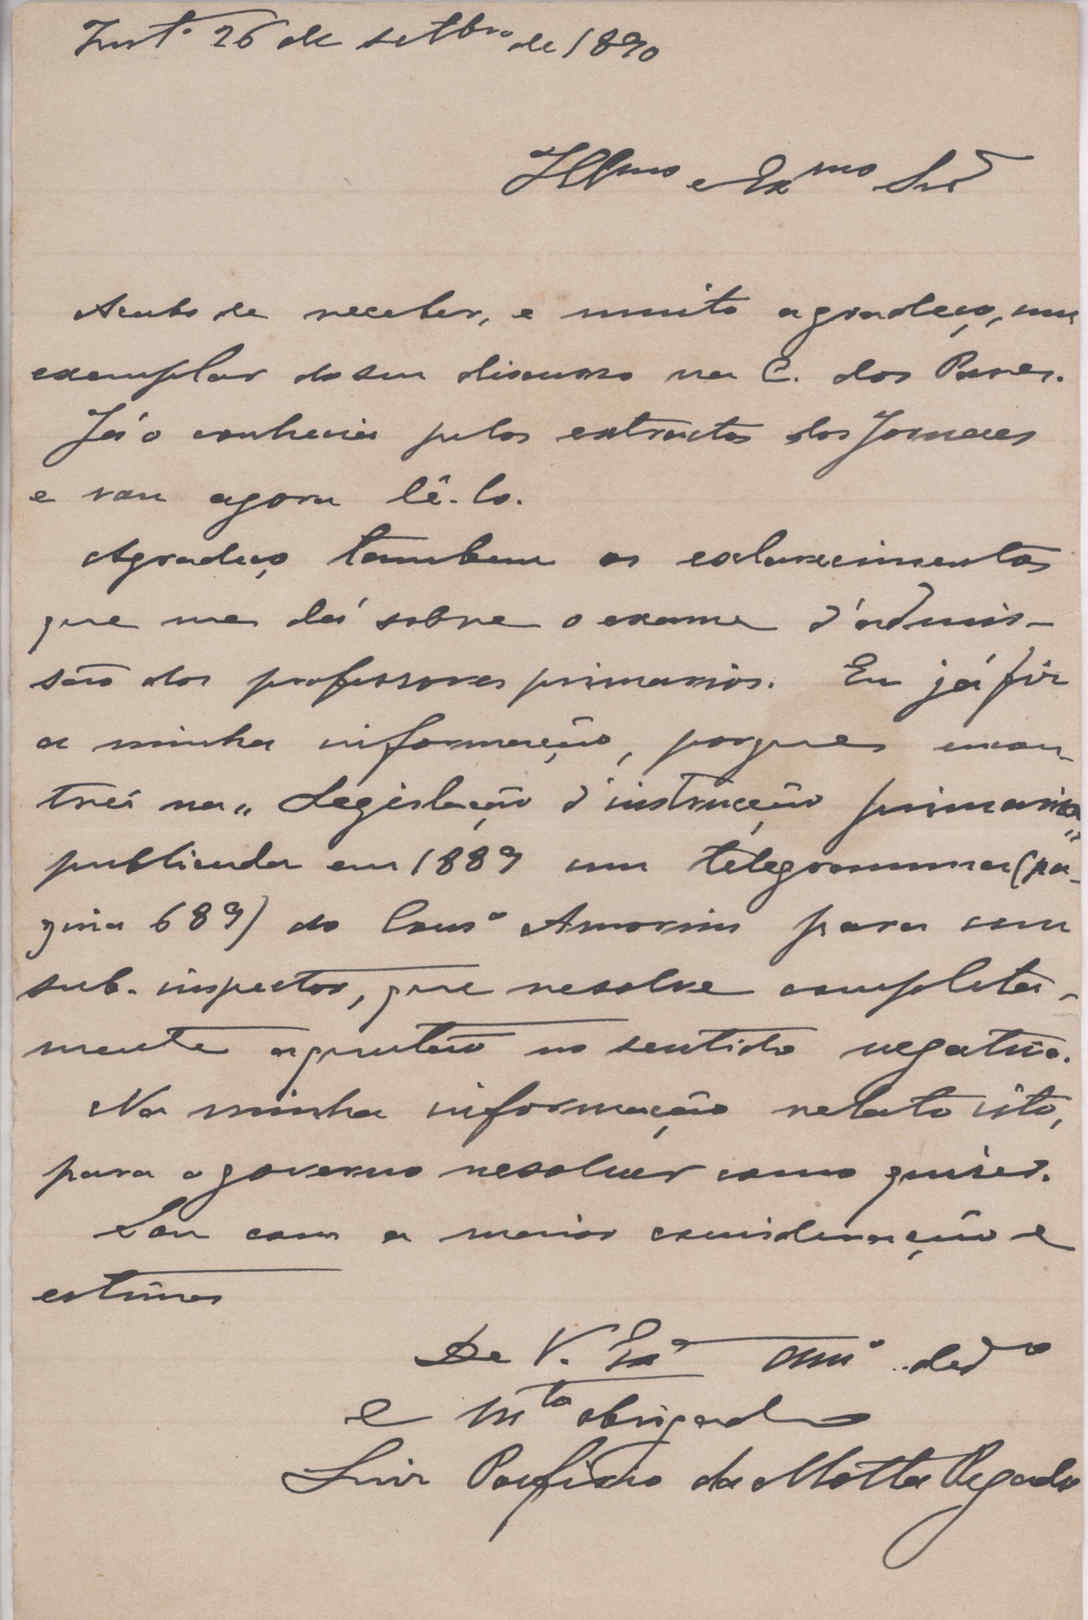 Inst.º 26 de setbro de 1890
Illmo e Exmo Snr
Acabo de receber, e muito agradeço, um
exemplar do seu discurso na C. dos Pares.
Já o conhecia pelos extractos dos Jornaes
e vou agora lê-lo.
Agradeço tambem os esclarecimentos
que me dá sobre o exame d'admis-
são dos professores primarios. Eu já fiz
a minha informação, porque encon-
trei na „Legislação d'instrucção primaria„
publicada em 1889 um telegramma (pa-
gina 689) do Consº Amorim para um
sub-inspector, que resolve completa-
mente a questão no sentido negativo.
Na minha informação relato isto,
para o governo resolver como quizer.
Sou com a maior consideração e
estima
De V. Exª amº dedº
e mto obrigado
Luiz Porfirio da Motta Pegado